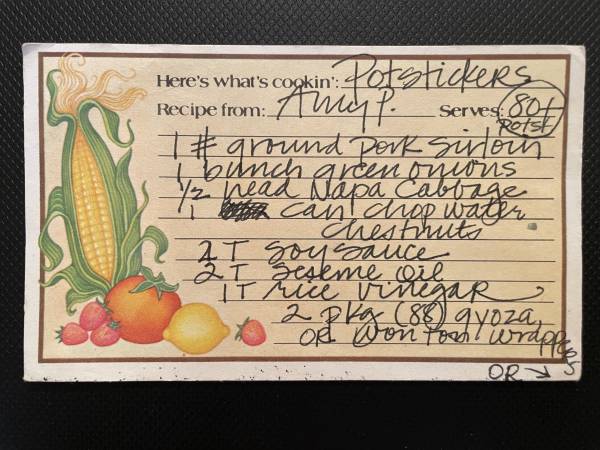 Here's what's cookin': Potstickers
Recipe from: Amy P. Serves: 80+
Potst.
1 # ground pork sirloin
1 bunch green onions
1/2 head Napa Cabbage
1 can chop water
chestnuts
2 T soy sauce
2 T seseme oil
1 T rice vinegar
2 pkg (88) gyoza
OR Won Ton wrappers
OR ↘